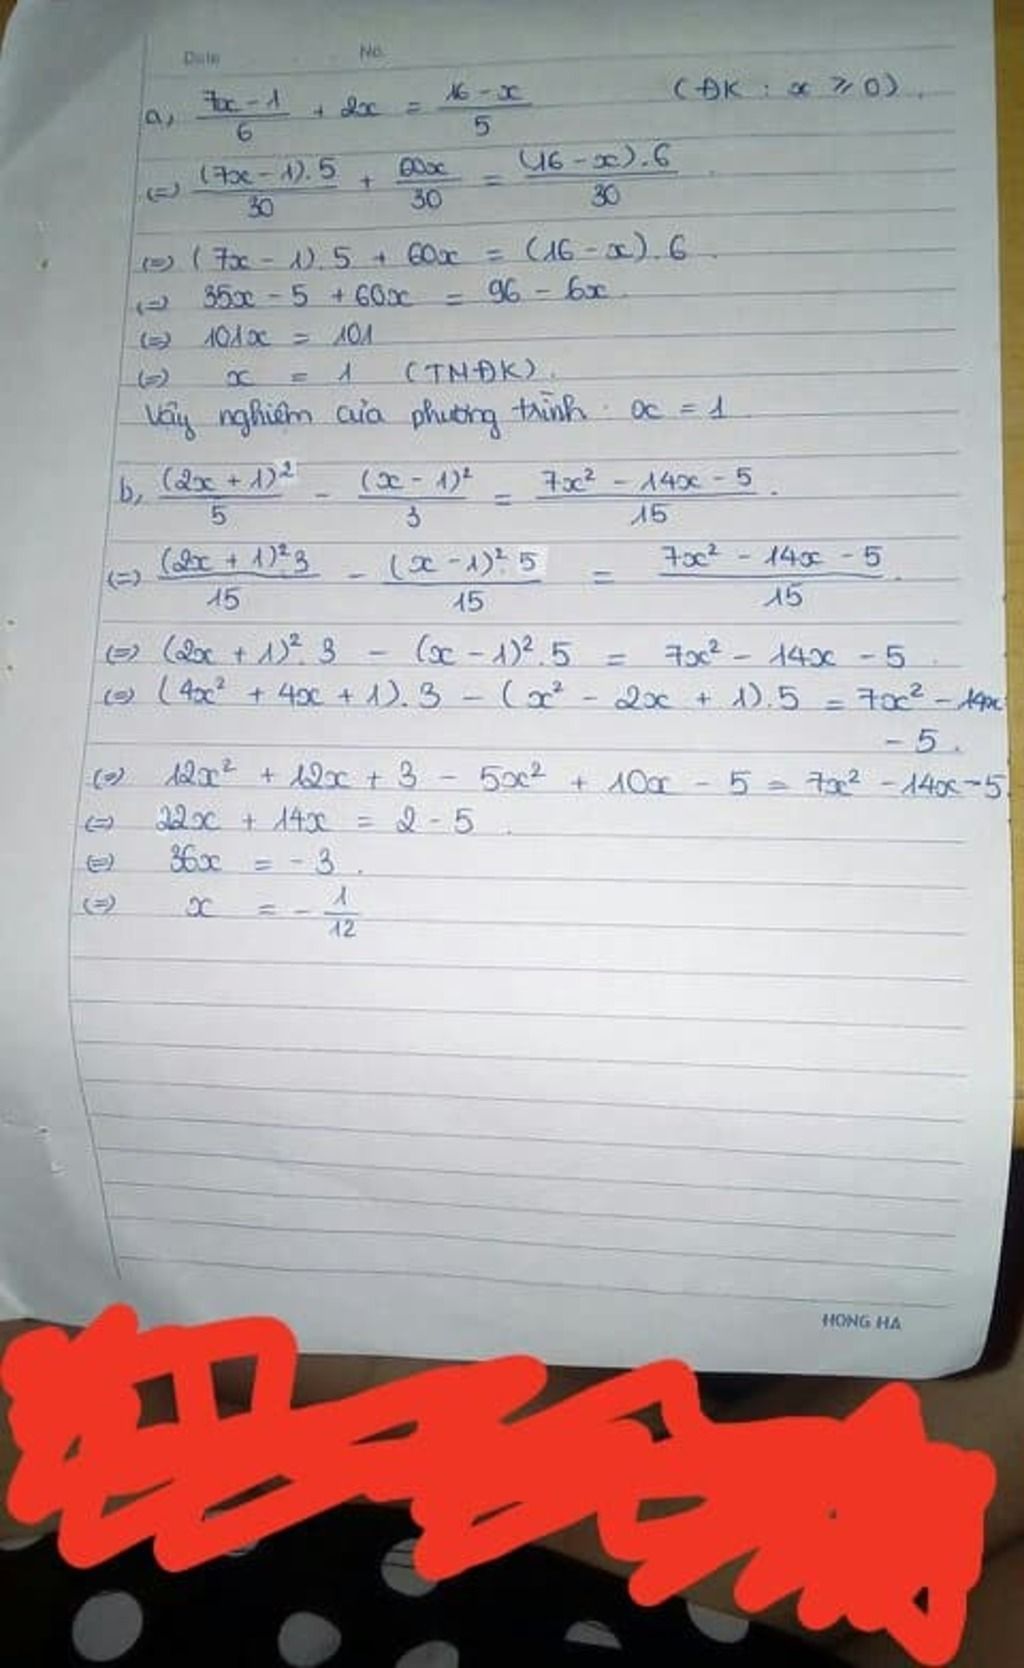 Date No.
a, (7x - 1)/6 + 2x = (16 - x)/5 (ĐK : x ≥ 0).
(=) ((7x - 1).5)/30 + 60x/30 = ((16 - x).6)/30
(=) (7x - 1).5 + 60x = (16 - x).6
(=) 35x - 5 + 60x = 96 - 6x
(=) 101x = 101
(=) x = 1 (TMĐK).
Vậy nghiệm của phương trình: x = 1
b, (2x + 1)²/5 - (x - 1)²/3 = (7x² - 14x - 5)/15.
(=) ((2x + 1)².3)/15 - ((x - 1)².5)/15 = (7x² - 14x - 5)/15.
(=) (2x + 1)².3 - (x - 1)².5 = 7x² - 14x - 5
(=) (4x² + 4x + 1).3 - (x² - 2x + 1).5 = 7x² - 14x
- 5.
(=) 12x² + 12x + 3 - 5x² + 10x - 5 = 7x² - 14x - 5
(=) 22x + 14x = 2 - 5
(=) 36x = - 3.
(=) x = - 1/12
HONG HA